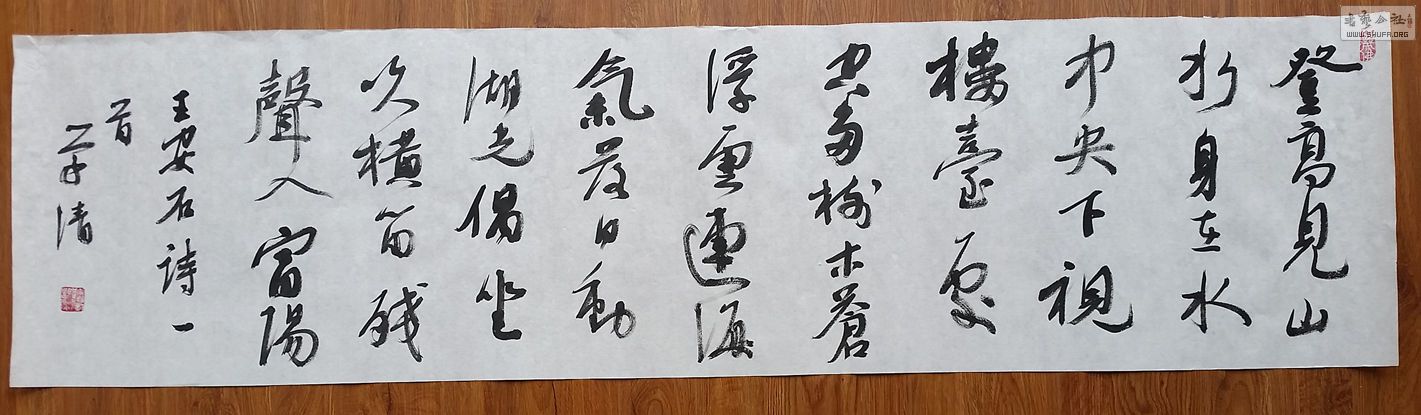 登高見山
水身在水
中央下視
樓臺處
空多樹木蒼
浮雲連海
氣落日動
湖光偶坐
吹橫笛殘
聲入富陽
王安石詩一
首
清
书艺公社
WWW.SHUFA.ORG